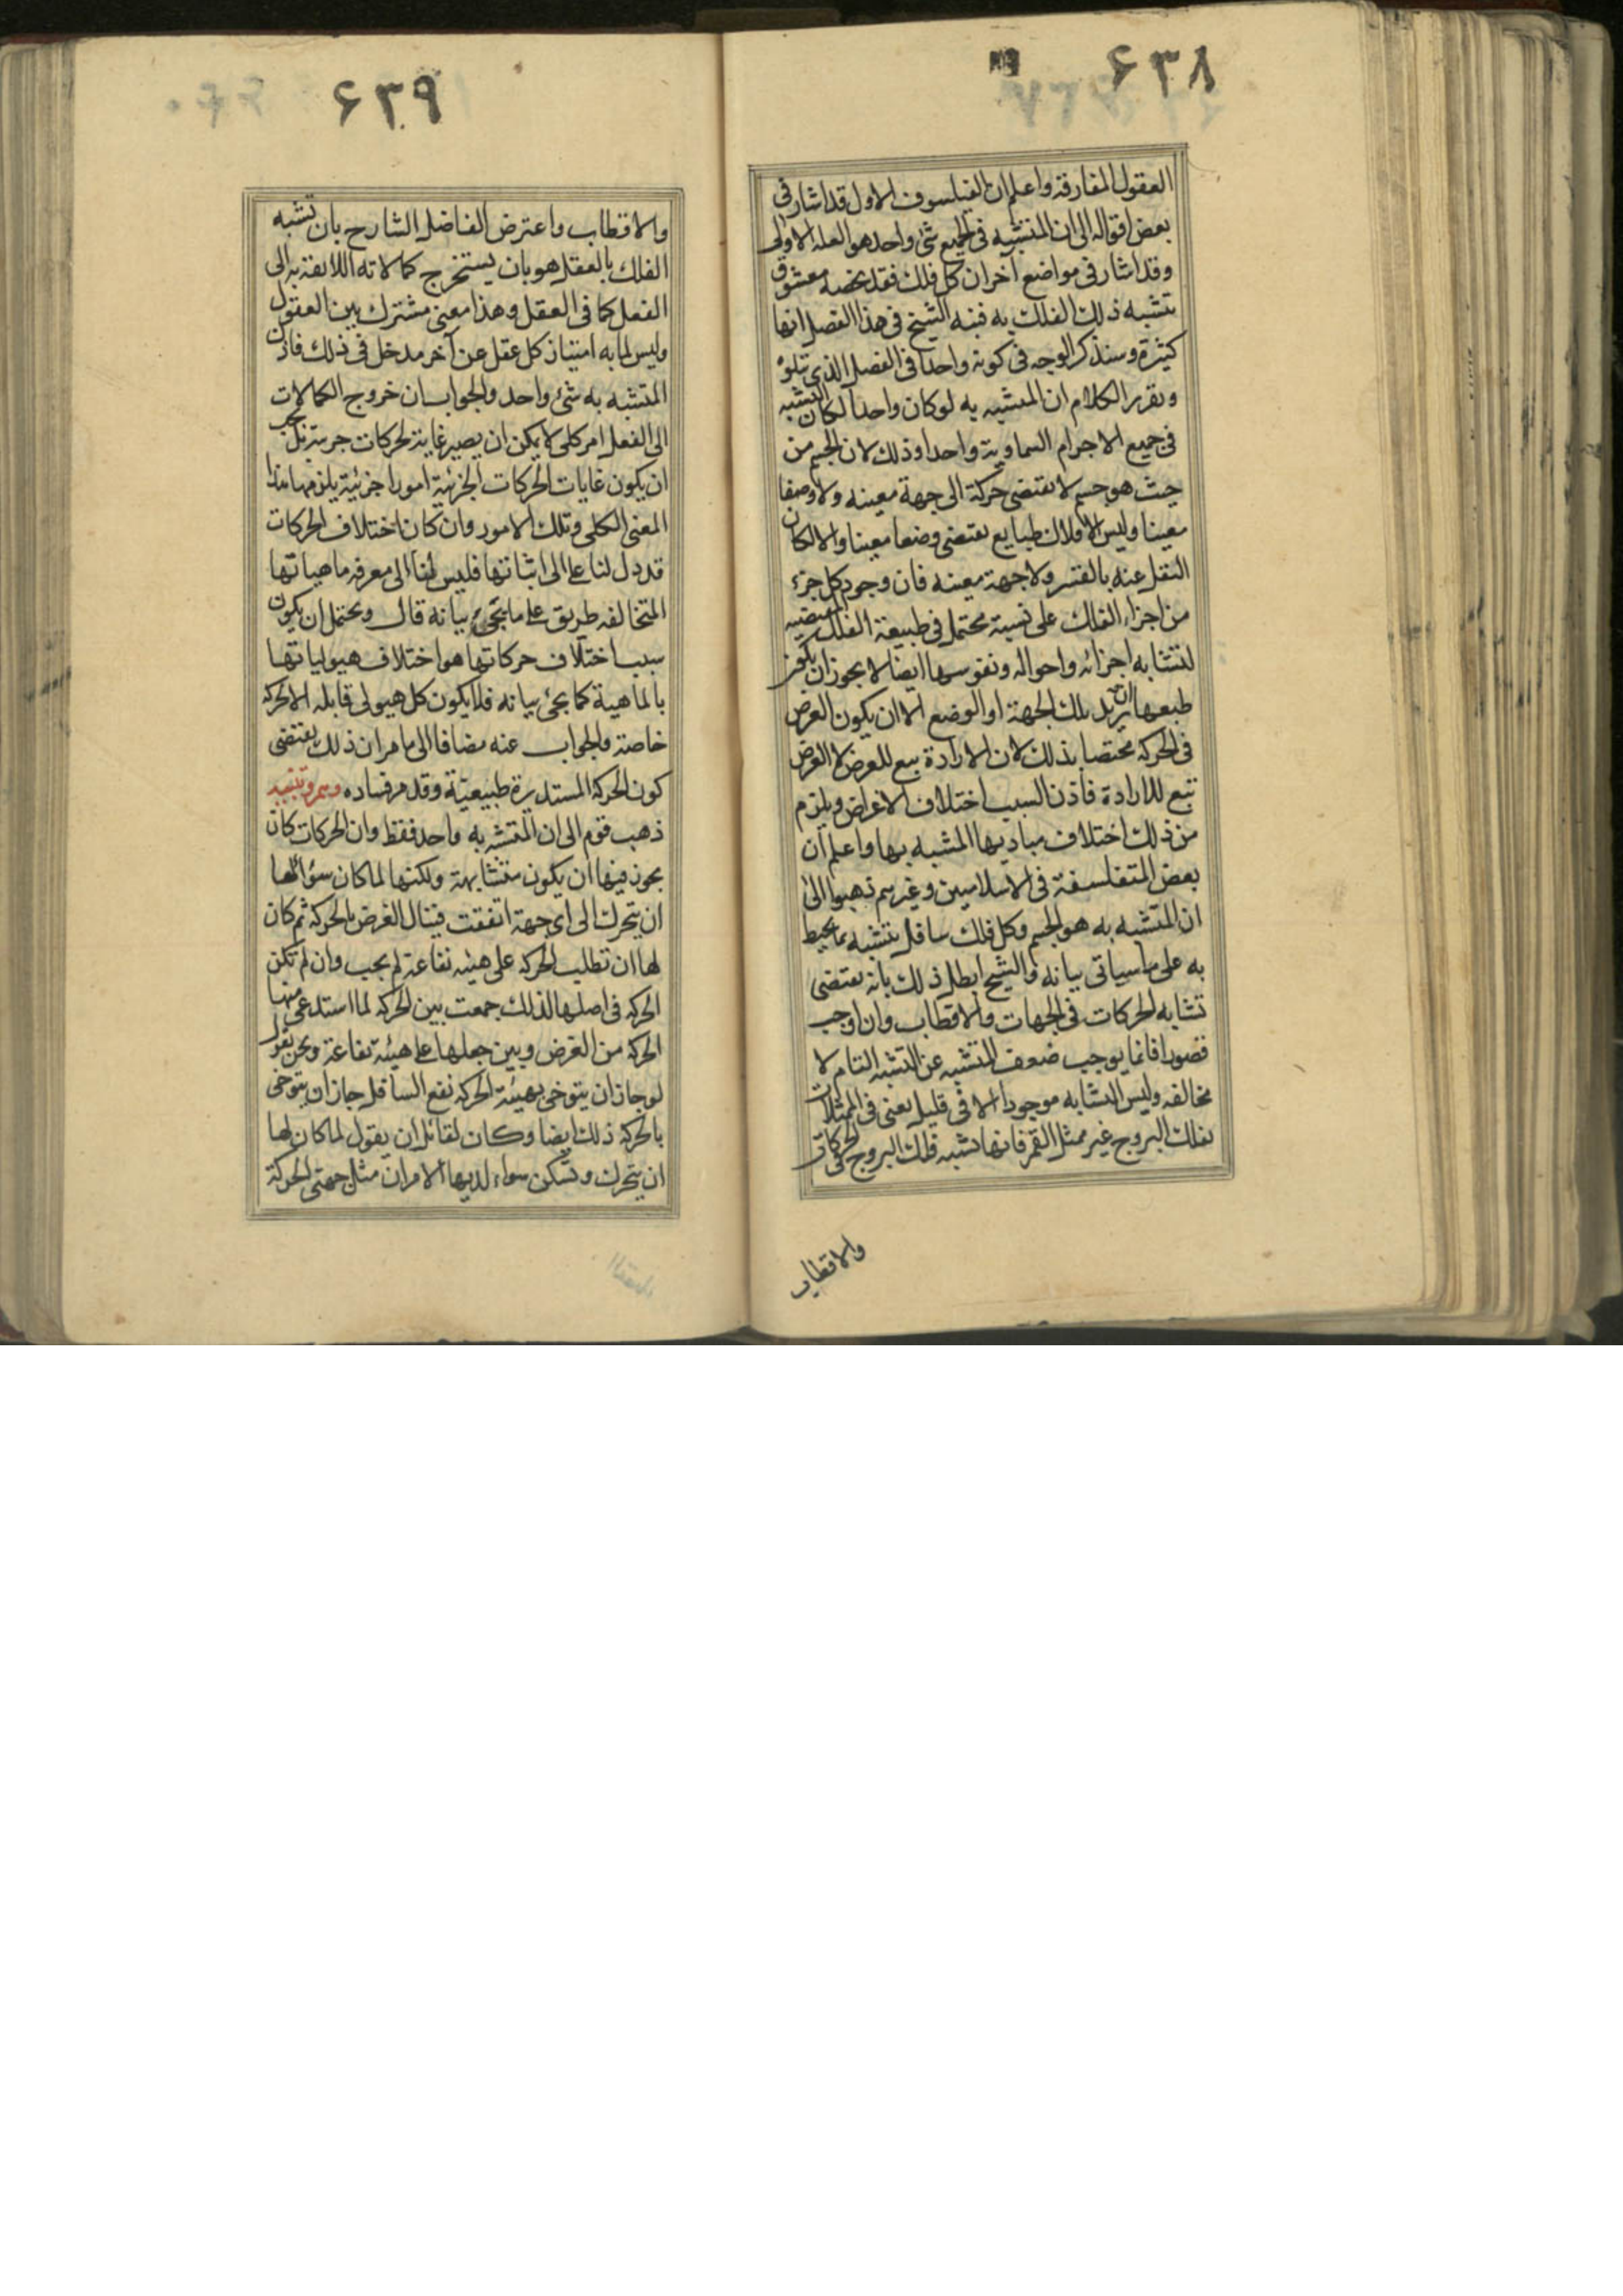 ۶۳۸
العقول المفارقة واعلم ان الفیلسوف الاول قد اشار فی
بعض اقواله الی ان المتشبه فی الجمیع شئ واحد هو العلة الاولی
وقد اشار فی مواضع آخر ان کل فلک فقد یخصه معشوق
یتشبه ذلک الفلک به فنبه الشیخ فی هذا الفصل انها
کثیرة وسنذکر الوجه فی کونه واحدا فی الفصل الذی یتلوه
وتقریر الکلام ان المتشبه به لو کان واحدا لکان التشبه
فی جمیع الاجرام السماویة واحدا وذلک لان الجسم من
حیث هو جسم لا یقتضی حرکة الی جهة معینه ولا وضعا
معینا ولیس للافلاک طبایع یقتضی وضعا معینا والا لکان
النقل عنه بالقسر ولا جهة معینه فان وجود کل جزء
من اجزاء الفلک علی نسبة محتمل فی طبیعة الفلک المقتضیه
لتشابه اجزائه واحواله ونفوسها ایضا لا یجوز ان یکون
طبعها ان یرید تلک الجهة او الوضع الا ان یکون الغرض
فی الحرکه مختصا بذلک لان الارادة تبع للغرض لا الغرض
تبع للارادة فاذن السبب اختلاف الاغراض ویلزم
من ذلک اختلاف مبادیها المتشبه بها واعلم ان
بعض المتفلسفة فی الاسلامیین وغیرهم ذهبوا الی
ان المتشبه به هو الجسم وکل فلک سافل یتشبه بما یحیط
به علی ما سیاتی بیانه والشیخ ابطل ذلک بانه یقتضی
تشابه الحرکات فی الجهات والاقطاب وان اوجب
قصورا فانما یوجب ضعف المتشبه عن التشبه التام لا
مخالفه ولیس التشابه موجودا الا فی قلیل یعنی فی الممثلات
لفلک البروج غیر ممثل القمر فانها تشبه فلک البروج فی الحرکات
والاقطاب
۶۳۹
والاقطاب واعترض الفاضل الشارح بان تشبه
الفلک بالعقل هو بان یستخرج کمالاته اللایقة به الی
الفعل کما فی العقل وهذا معنی مشترک بین العقول
ولیس لما به امتیاز کل عقل عن آخر مدخل فی ذلک فاذن
المتشبه به شئ واحد والجواب ان خروج الکمالات
الی الفعل امر کلی لا یکن ان یصیر غایة لحرکات جزیة بل یجب
ان یکون غایات الحرکات الجزئیة امورا جزئیة یلزمها هذا
المعنی الکلی وتلک الامور وان کان اختلاف الحرکات
قد دل لنا علی اثباتها فلیس لنا الی معرفة ماهیاتها
المتخالفه طریق علی ما یجئ بیانه قال ویحتمل ان یکون
سبب اختلاف حرکاتها هو اختلاف هیولیاتها
بالماهیة کما یجئ بیانه فلا یکون کل هیولی قابله الا لحرکه
خاصة والجواب عنه مضافا الی ما مر ان ذلک یقتضی
کون الحرکه المستدیرة طبیعیة وقد مر فساده وهم وتنبیه
ذهب قوم الی ان المتشبه به واحد فقط وان الحرکات کان
یجوز فیها ان یکون متشابهة ولکنها لما کان سؤا لها
ان یتحرک الی ای جهة اتفقت فینال الغرض بالحرکه ثم کان
لها ان تطلب الحرکه علی هیئه نفاعة لم یجب وان لم تکن
الحرکه فی اصلها لذلک جمعت بین الحرکه لما استدعی منها
الحرکه من الغرض وبین جعلها علی هیئة نفاعة ونحن نقول
لو جاز ان یتوخی بهیئة الحرکه نفع السافل جاز ان یتوخی
بالحرکه ذلک ایضا وکان لقائل ان یقول لما کان لها
ان یتحرک وتسکن سواء لدیها الامران مثل جهتی الحرکة